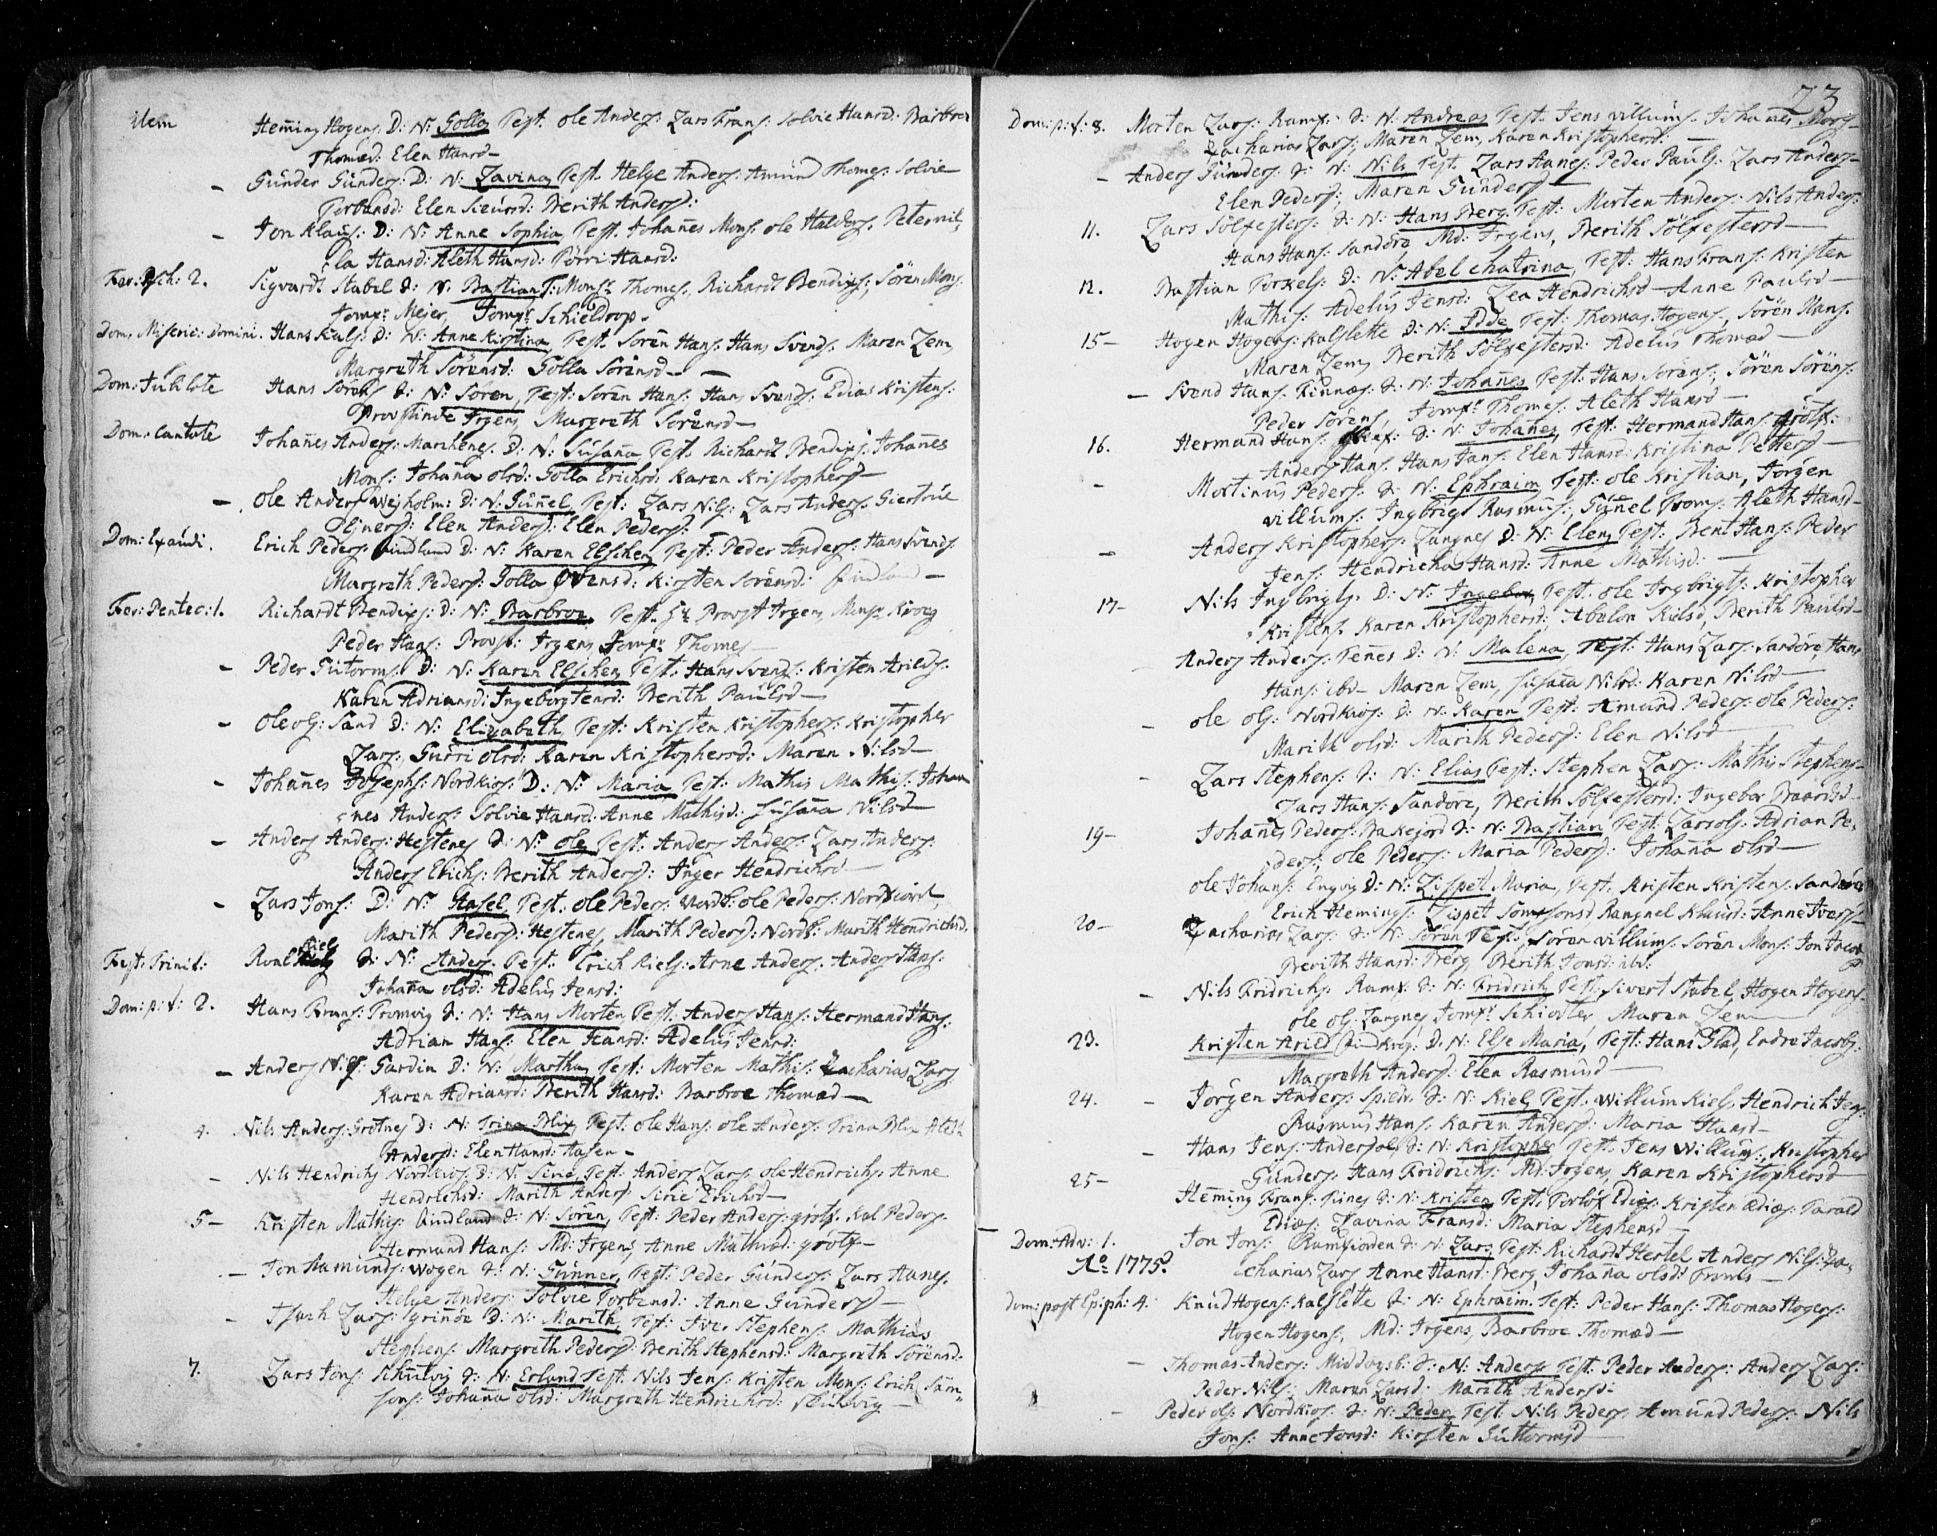 item Heming Hogens: D: N: Golla Test: Ole Anders: Lars Frans: Solvie Hansd: Barbroe
Thomæd: Elen Hansd —
— Gunder Gunders: D: N: Lavina Test. Helge Anders: Amund Thomes: Solvie
Torbensd: Elen Siursd: Berith Andersd:
— Jon Klaus: D: N: Anne Sophia, Test. Johañes Mons: Ole Halders. Peternil-
la Hansd: Aleth Hansd: Hansd:
Fer: Pasch: 2. Sigvardt Stabel S: N: Bastian T: Monsr Thomes, Richardt Bendixs: Sören Mons:
Jomfr Mejer, Jomfr Schieldrop.
Dom. Miseric: domini. Hans Kiils: D: N: Anne Kirstina, Test. Sören Hans: Hans Svends. Maren Lem,
Margreth Sörensd: Golla Sörensd —
Dom: Jubilate Hans Sörens S: N: Sören, Test: Sören Hans: Hans Svends: Edias Kristens:
Provstinde Irgens, Margreth Sörensd —
Dom: Cantate Johañes Anders: D: N: Susaña Test. Richardt Bendixs: Johañes
Mons: Johaña Olsd: Golla Erichsd: Karen Kristophersd —
— Ole Anders Wejholm: D: N: Guñel Test: Lars Nils: Lars Anders. Giertrue
Elen Andersd: Elen Pedersd:
Dom: Exaudi. Erich Peders: Qvindland D: N: Karen Elschen, Test: Peder Anders: Hans Svends:
Margreth Pedersd: Golla Ovensd: Kirsten Sörensd: Qvindland —
Fer: Pentec: 1. Richardt Bendixs: D: N: Barbroe Test. Hr Provst Irgens, Monsr Krog
Peder Hans: Provst: Irgens Jomfr Thomes
— Peder Guttorms: D: N: Karen Elschen Test: Hans Svends: Kristen Arilds:
Karen Adriansd: Ingeborg Jensd: Berith Paulsd —
— Ole Ols: Sand D: N: Elizabeth, Test: Kristen Kristophers: Kristopher
Lars: Gurri Olsd: Karen Kristophersd: Maren Nilsd —
— Johañes Josephs: Nordkios: D: N: Maria Test: Mathis Mathis: Johan
nes Anders: Solvie Hansd: Anne Mathisd: Susaña Nilsd
— Anders Anders: Hestenes S: N: Ole Test: Anders Anders: Lars Anders:
Anders Erichs: Berith Andersd: Inger Hendrichsd —
— Lars Jons: D: N: Hasel Test: Ole Peders: Nordk: Ole Peders: Nordkios
Marith Pedersd: Hestenes, Marith Pedersd: Nordk: Marith Hendrichsd.
Fest: Trinit: Roal Kiels S: N: Anders. Test. Erich Kiels: Arne Anders: Anders Hans:
Johaña Olsd: Adelus Jensd:
Dom: p: t: 2. Hans Frans: Tromvig S: N: Hans Morten Test: Anders Hans: Hermand Hans:
Adrian Hans: Elen Hansd: Adelus Jensd:
— Anders Nils: Gardin D: N: Martha Test: Morten Mathis: Zacharias Lars
Karen Adriansd: Berith Hansd: Barbroe Thomæd —
4. Nils Anders: Grötnes D: N: Trina Blix, Test. Ole Hans: Ole Anders: Trina Blix Aleth
Andersd: Elen Hansd: Hasen —
— Nils Hendrichs Nordkios: D: N: Sirie, Test: Anders Lars: Ole Hendrichs: Anne
Hendrichsd: Marith Andersd: Sirie Erichsd —
5 — Kristen Mathis: Qvindland S: N: Sören, Test: Peder Anders: Grötf. Kal Peders.
Hermand Hans: Md: Irgens, Anne Mathisd: Grötf —
— Jon Aamunds: Wogen S: N: Gunner, Test: Peder Gunders: Lars Aanes:
Helge Anders: Solvie Torbensd: Anne Gundersd —
— Isach Lars: D: N: Marith Test: Iver Stephens: Mathias
Stephens: Margreth Pedersd: Berith Stephensd: Margreth Sörensd:
7. Lars Jons: Schulvig S: N: Erland Test: Nils Jens: Kristen Mons: Erich Sam-
sons: Johaña Olsd: Margreth Hendrichsd: Skulvig —
23
Dom: p: t: 8. Morten Lars: Ramf: S: N: Andreas Test. Jens Villums. Johañes Mons —
Zacharias Lars: Maren Lem, Karen Kristophersd: —
— Anders Gunders: S: N: Nils Test: Lars Aanes: Peder Pauls: Lars Anders —
Elen Pedersd: Maren Gundersd —
11. Lars Sölfesters: S: N: Hans Berg Test: Morten Anders: Nils Anders:
Hans Hans: Sandöre Md: Irgens, Berith Sölfestersd —
12. Bastian Torkels: D: N: Abel Chatrina, Test: Hans Frans: Kristen
Mathis: Adelus Jensd: Lea Hendrichsd — Anne Paulsd —
15 — Hogen Hogens: Kalslette D: N: Edde Test: Thomas Hogens, Sören Hans.
Maren Lem, Berith Sölfestersd: Adelus Thomæd —
— Svend Hans: Finnæs: S: N: Johañes Test: Hans Sörens: Sören Sörens:
Peder Sörens, Jomfr Thomes: Aleth Hansd —
16. Hermand Hans: S: N: Johañes, Test: Hermand Hans: Grötf:
Anders Hans: Hans Jans: Elen Hansd: Kristina Pettersd —
— Mortinus Peders: S: N: Ephraim Test: Ole Kristian, Jörgen
Villums: Ingbrigt Rasmus: Guñel Aleth Hansd —
— Anders Kristophers: Langnes D: N: Elen Test: Bent Hans: Peder
Jens: Hendricha Hansd: Anne Mathisd: —
17 — Nils Ingbrigts. D: N: Ingebor, Test. Ole Ingbrigts: Kristopher
Kristens. Karen Kristophersd: Abelon Kielsd, Berith Paulsd —
Anders Anders: Teñes D: N: Malena, Test: Hans Lars: Sandöre, Hans
Hans: ibd — Maren Lem, Susaña Nilsd: Karen Nilsd —
— Ole Ols: Nordkios: D: N: Karen Test: Amund Peders: Ole Peders:
Marith Olsd: Marith Pedersd: Elen Nilsd —
— Lars Stephens: S: N: Elias Test: Stephen Lars: Mathis Stephens —
Lars Hans: Sandöre, Berith Sölfestersd: Ingebor
19 — Johañes Peders: Bakejord S: N: Bastian Test. Lars Ols: Adrian Pe-
ders: Ole Peders: Maria Pedersd: Johaña Olsd —
Ole Johans: Engvig D: N: Lispet Maria, Test. Kristen Kristens: Sandöre
Erich Hemings: Lispet Somsonsd Rangnel Knudsd: Anne Iversd —
20 — Zacharias Lars: S: N: Sören Test. Sören Villums: Sören Mons: Jon Jacob
Berith Hansd: Berg, Berith Jonsd: ibd:
— Nils Fridrichs. Ramf. S: N: Fridrich Test: Sivert Stabel, Hogen Hogens —
Ole Ols: Langnes, Jomfr Schiötter Maren Lem —
23. Kristen Arild D: N: Else Maria, Test: Hans Glad, Endre Jacobs:
Margreth Andersd: Elen Rasmusd —
24. — Jörgen Anders: Spildr. S: N: Kiel Test: Willum Kiels, Hendrich Jens
Rasmus Hans: Karen Andersd: Maria Hansd —
— Hans Jens: S: N: Kristopher Test: Jens Willums: Kristopher
Gunders: Hans Fridrichs: Md: Irgens, Karen Kristophersd
25 — Heming Frans: Finnes S: N: Kristen Test: Torlöf Edies: Kristen Edies: Tarald
Edies: Lavina Fransd: Maria Stephensd —
Dom: Adv: 1. Jon Jons: Ramfiorden S: N: Lars Test: Richardt Hertel Anders Nils: Za-
Ao 1775. charias Lars Anne Hansd: Berg, Johaña Olsd:
Dom: post Epiph: 4. Knud Hogens: Kalslette S: N: Ephraim. Test. Peder Hans: Thomas Hogens:
Hogen Hogens, Md: Irgens, Barbroe Thomæd —
— Thomas Anders: Middagsb: S: N: Anders Test. Peder Anders: Anders Lars:
Peder Nils: Maren Larsd: Marith Andersd:
— Peder Ols: Nordkios: S: N: Peder, Test: Nils Peders Amund Peders: Nils
Jons: Anne Jonsd: Kirsten Guttormsd —